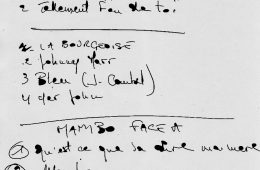 2 tellement Fou de toi
1. LA BOURGEOISE
2 Johnny Jarr
3 Bleu (J. Combel)
4 djer John
MAMBO FACE A
① Qu'est ce que sa dire ma mere
②